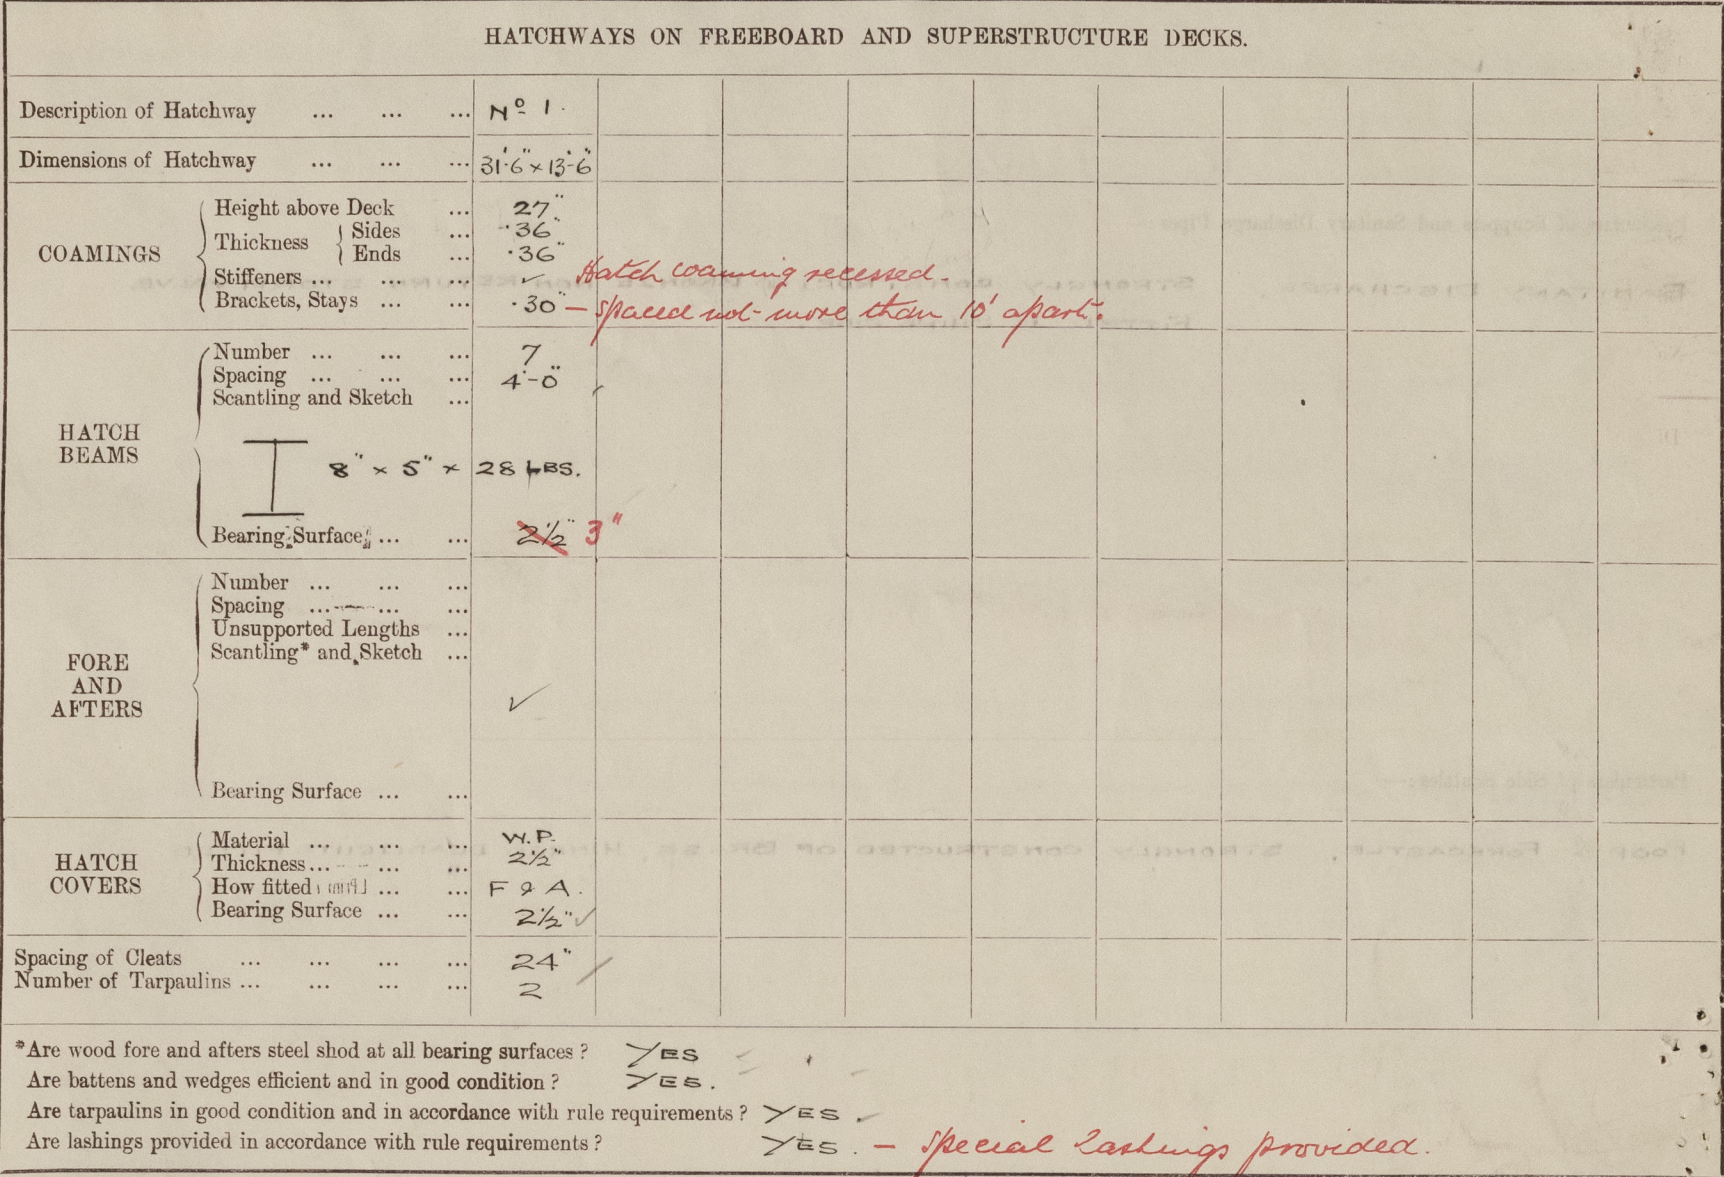 HATCHWAYS ON FREEBOARD AND SUPERSTRUCTURE DECKS.
Description of Hatchway ... ... ... Nº 1.
Dimensions of Hatchway ... ... ... 31'-6" x 13'-6"
COAMINGS
Height above Deck ... 27"
Thickness
Sides ... ·36"
Ends ... ·36"
Stiffeners ... ... ... ✓ Hatch coaming recessed.
Brackets, Stays ... ... ·30" — Spaced not more than 10' apart.
HATCH BEAMS
Number ... ... ... 7
Spacing ... ... ... 4'-0"
Scantling and Sketch ...
8" x 5" x 28 LBS.
Bearing Surface ... ... 2½" 3"
FORE AND AFTERS
Number ... ... ...
Spacing ... ... ...
Unsupported Lengths ...
Scantling* and Sketch ...
✓
Bearing Surface ... ...
HATCH COVERS
Material ... ... ... W.P.
Thickness ... ... ... 2½"
How fitted ... ... F & A.
Bearing Surface ... ... 2½" ✓
Spacing of Cleats ... ... ... ... 24"
Number of Tarpaulins ... ... ... ... 2
*Are wood fore and afters steel shod at all bearing surfaces? YES
Are battens and wedges efficient and in good condition? YES.
Are tarpaulins in good condition and in accordance with rule requirements? YES.
Are lashings provided in accordance with rule requirements? YES. — Special Lashings provided.